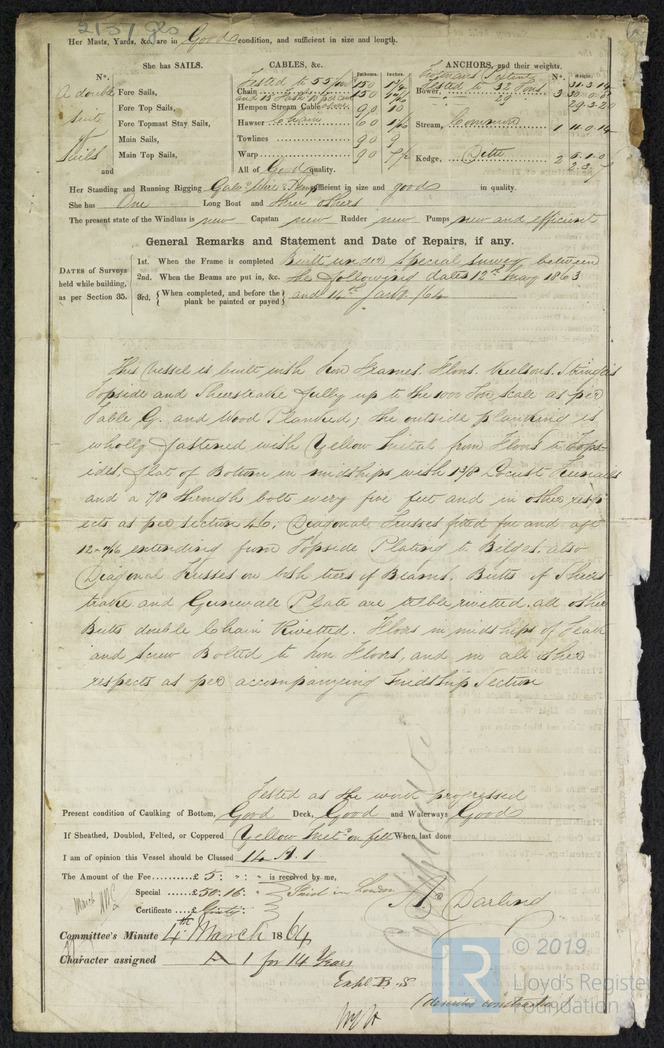 2137 Gls
Her Masts, Yards, &c. are in Good condition, and sufficient in size and length.
She has SAILS.
CABLES, &c.
ANCHORS, and their weights.
N°.
Fathoms.
Inches.
N°.
Weight.
A double
suit
of
Sails
Fore Sails,
Fore Top Sails,
Fore Topmast Stay Sails,
Main Sails,
Main Top Sails,
and
Tested to 55
Chain
Hempen Stream Cable
Hawser
Towlines 90
Warp 90
All of Good quality.
Tested to 32 Tons
Bower, 3
Stream, Common 1 11.0.14
Kedge, 2
Her Standing and Running Rigging sufficient in size and good in quality.
She has One Long Boat and three others
The present state of the Windlass is new Capstan new Rudder new Pumps new and efficient
General Remarks and Statement and Date of Repairs, if any.
DATES of Surveys
held while building,
as per Section 35.
1st. When the Frame is completed Built under Special Survey between
2nd. When the Beams are put in, &c. the following dates 12th May 1863
3rd. { When completed, and before the plank be painted or payed } and 14th Jany /64
This Vessel is built with Iron Frames. Floors. Keelsons. Stringers
Topside and Sheerstrake fully up to the 1000 Ton scale as per
Table G. and Wood Planked; the outside planking is
wholly fastened with Yellow Metal from Floors to Tops-
ides, flat of Bottom in midships with 1 3/8 Locust Treenails
and a 7/8 through bolt every five feet and in other resp-
ects as per Section 46; Diagonal Trusses fitted fore and aft
extending from Topside Plating to Bilges. also
Diagonal Trusses on both tiers of Beams. Butts of Sheers-
trake and Gunwale Plate are treble rivetted. all other
Butts double Chain Rivetted. Floors in midships of Teak
and Screw Bolted to Iron Floors, and in all other
respects as per accompanying Midship Section
Tested as the work progressed
Present condition of Caulking of Bottom, Good Deck, Good and Waterways Good
If Sheathed, Doubled, Felted, or Coppered Yellow Metl on felt When last done
I am of opinion this Vessel should be Classed 14 A. 1
The Amount of the Fee £ 5 : " : " is received by me,
Special £ 50.16 : " Paid in London
Certificate £
Committee's Minute 4th March 1864
Character assigned A 1 for 14 Years
© 2019
Lloyd's Register
Foundation